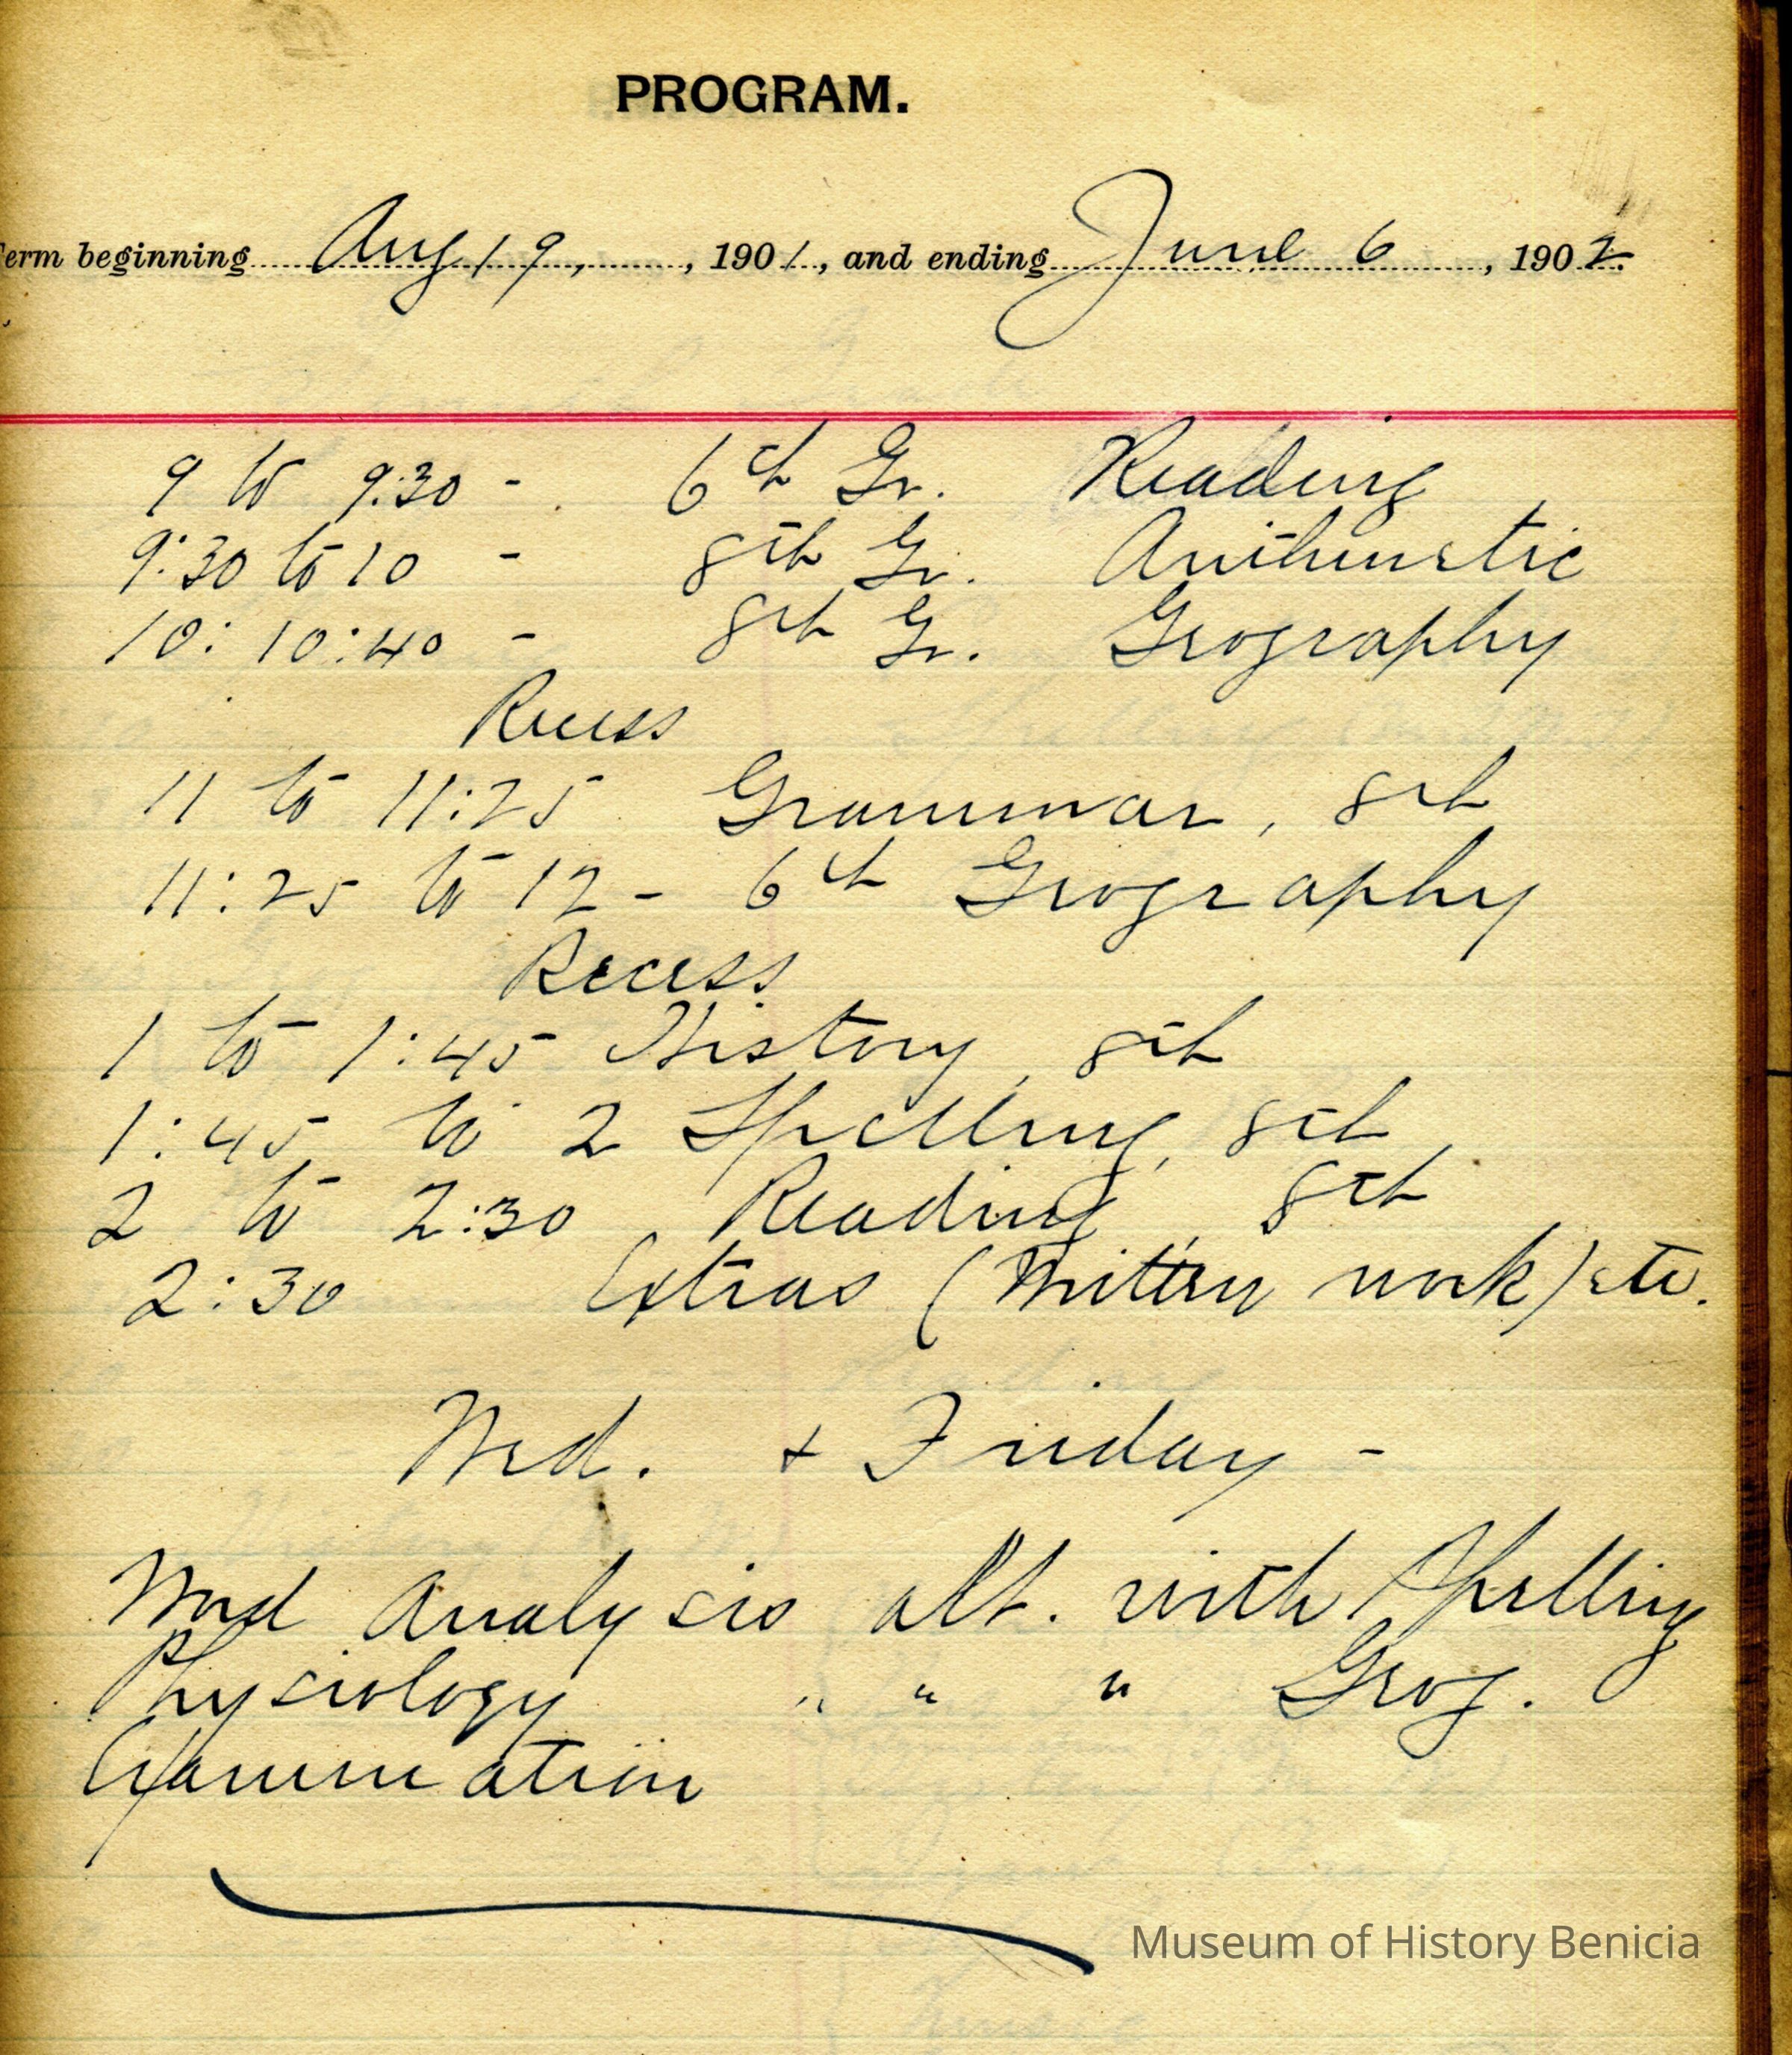 PROGRAM.
erm beginning Aug 19, , 1901, and ending June 6, 1902.
9 to 9:30 - 6th Gr. Reading
9:30 to 10 - 8th Gr. Arithmetic
10: 10:40 - 8th Gr. Geography
Recess
11 to 11:25 Grammar, 8th
11:25 to 12 - 6th Geography
Recess
1 to 1:45 History, 8th
1:45 to 2 Spelling, 8th
2 to 2:30 Reading, 8th
2:30 Extras (Written work) etc.
Wed. + Friday -
Word Analysis alt. with Spelling
Physiology " " " Geog.
Examination
Museum of History Benicia